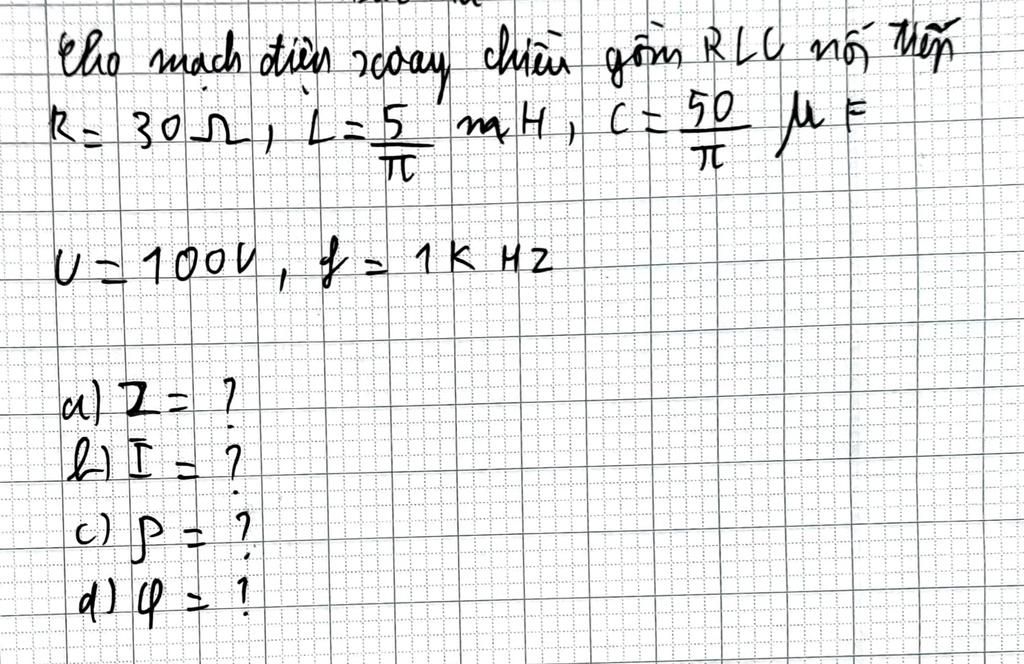 Cho mạch điện xoay chiều gồm RLC nối tiếp
R = 30Ω, L = 5/π mH, C = 50/π μF
U = 100V, f = 1KHz
a) Z = ?
b) I = ?
c) P = ?
d) φ = ?